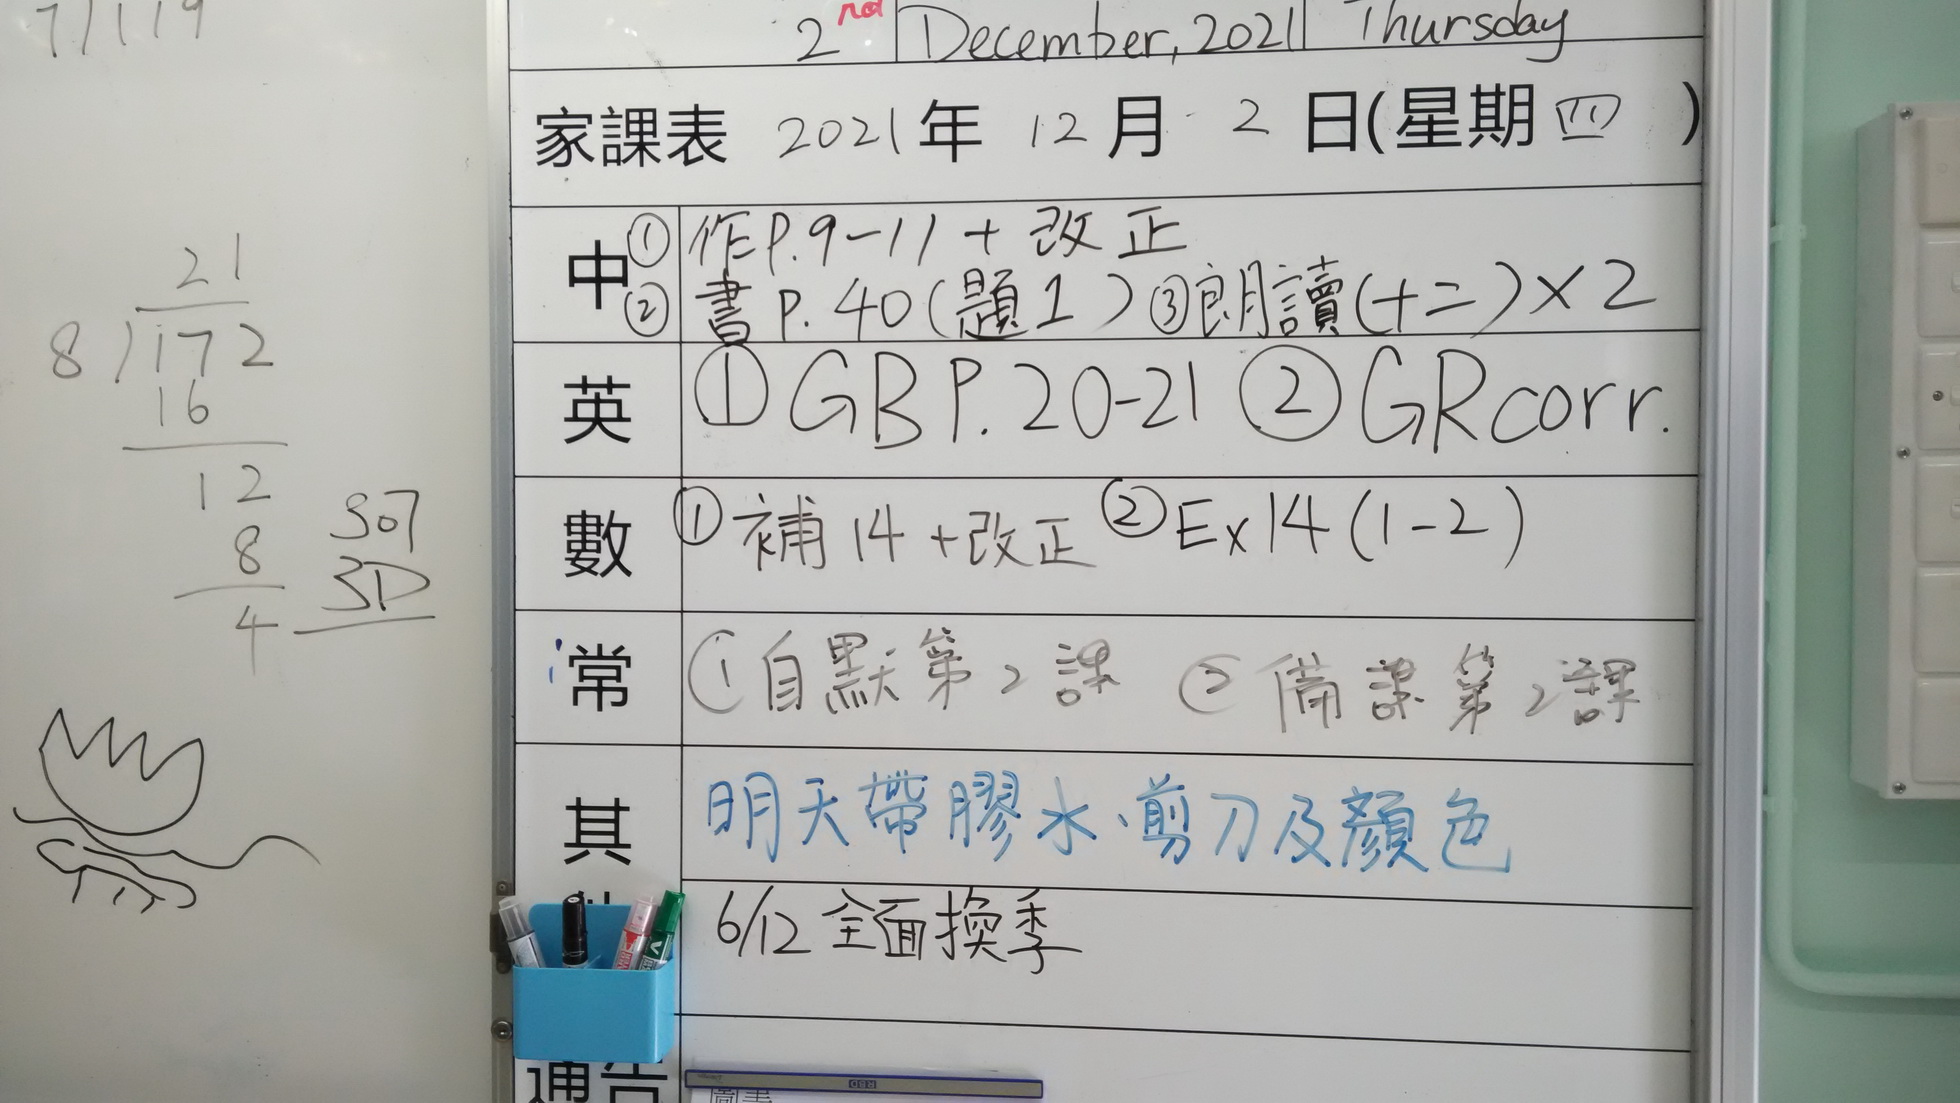 7/119
21
8)172
16
12
8
4
307
3D
2nd December, 2021 Thursday
家課表 2021年 12月 2日(星期四)
中 ①作P.9-11+改正
②書P.40(題1) ③朗讀(十二)×2
英 ①GB P.20-21 ②GR corr.
數 ①補14+改正 ②Ex14(1-2)
常 ①自默第2課 ②備課第2課
其
明天帶膠水、剪刀及顏色
6/12全面換季
通告